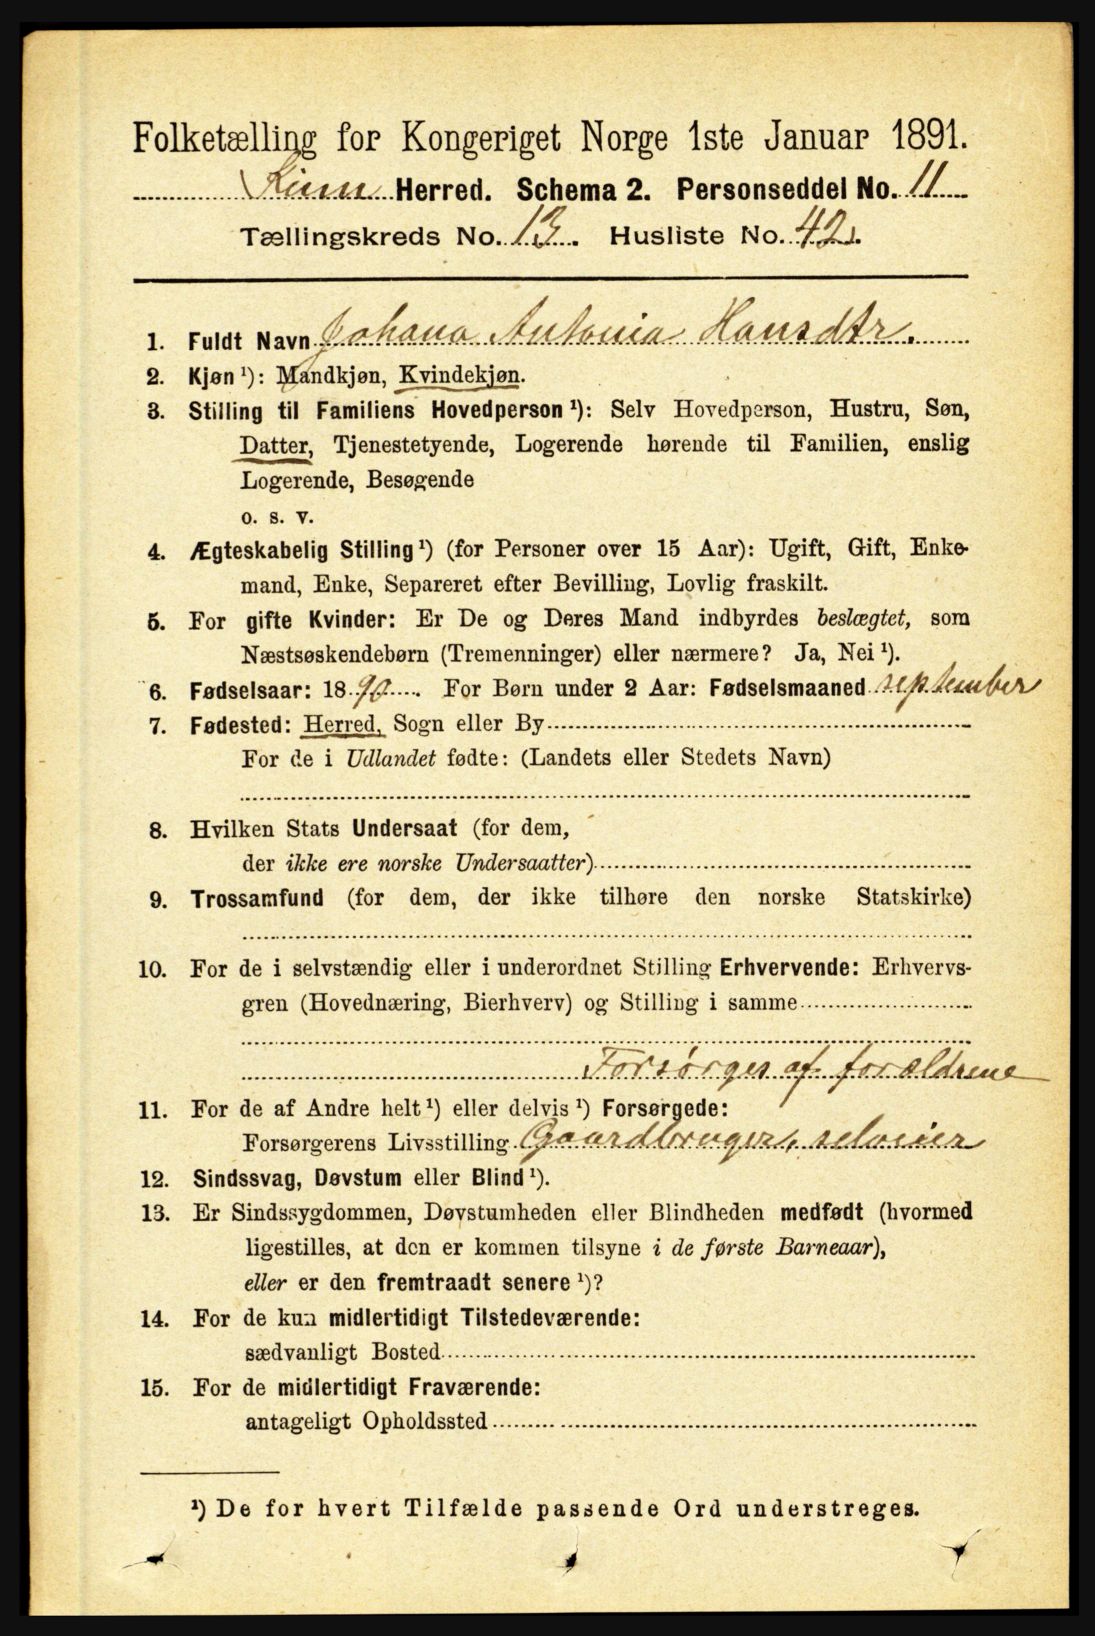 Folketælling for Kongeriget Norge 1ste Januar 1891.
Kinn Herred. Schema 2. Personseddel No. 11
Tællingskreds No. 13. Husliste No. 42.
1. Fuldt Navn Johana Antonia Hansdtr.
2. Kjøn¹): Mandkjøn, Kvindekjøn.
3. Stilling til Familiens Hovedperson¹): Selv Hovedperson, Hustru, Søn,
Datter, Tjenestetyende, Logerende hørende til Familien, enslig
Logerende, Besøgende
o. s. v.
4. Ægteskabelig Stilling¹) (for Personer over 15 Aar): Ugift, Gift, Enke-
mand, Enke, Separeret efter Bevilling, Lovlig fraskilt.
5. For gifte Kvinder: Er De og Deres Mand indbyrdes beslægtet, som
Næstsøskendebørn (Tremenninger) eller nærmere? Ja, Nei¹).
6. Fødselsaar: 1890. For Børn under 2 Aar: Fødselsmaaned september
7. Fødested: Herred, Sogn eller By
For de i Udlandet fødte: (Landets eller Stedets Navn)
8. Hvilken Stats Undersaat (for dem,
der ikke ere norske Undersaatter)
9. Trossamfund (for dem, der ikke tilhøre den norske Statskirke)
10. For de i selvstændig eller i underordnet Stilling Erhvervende: Erhvervs-
gren (Hovednæring, Bierhverv) og Stilling i samme
Forsørges af forældrene
11. For de af Andre helt¹) eller delvis¹) Forsørgede:
Forsørgerens Livsstilling Gaardbruger, selveier
12. Sindssvag, Døvstum eller Blind¹).
13. Er Sindssygdommen, Døvstumheden eller Blindheden medfødt (hvormed
ligestilles, at den er kommen tilsyne i de første Barneaar),
eller er den fremtraadt senere¹)?
14. For de kun midlertidigt Tilstedeværende:
sædvanligt Bosted
15. For de midlertidigt Fraværende:
antageligt Opholdssted
¹) De for hvert Tilfælde passende Ord understreges.